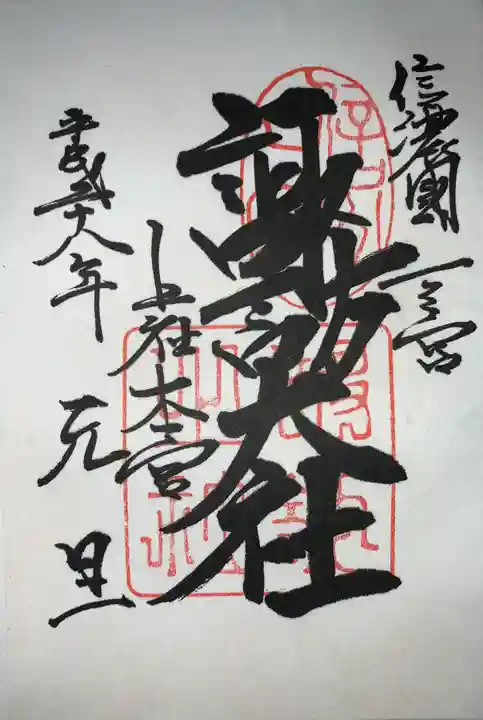 信濃國一之宮
諏訪大社
上社本宮
平成二十八年元旦